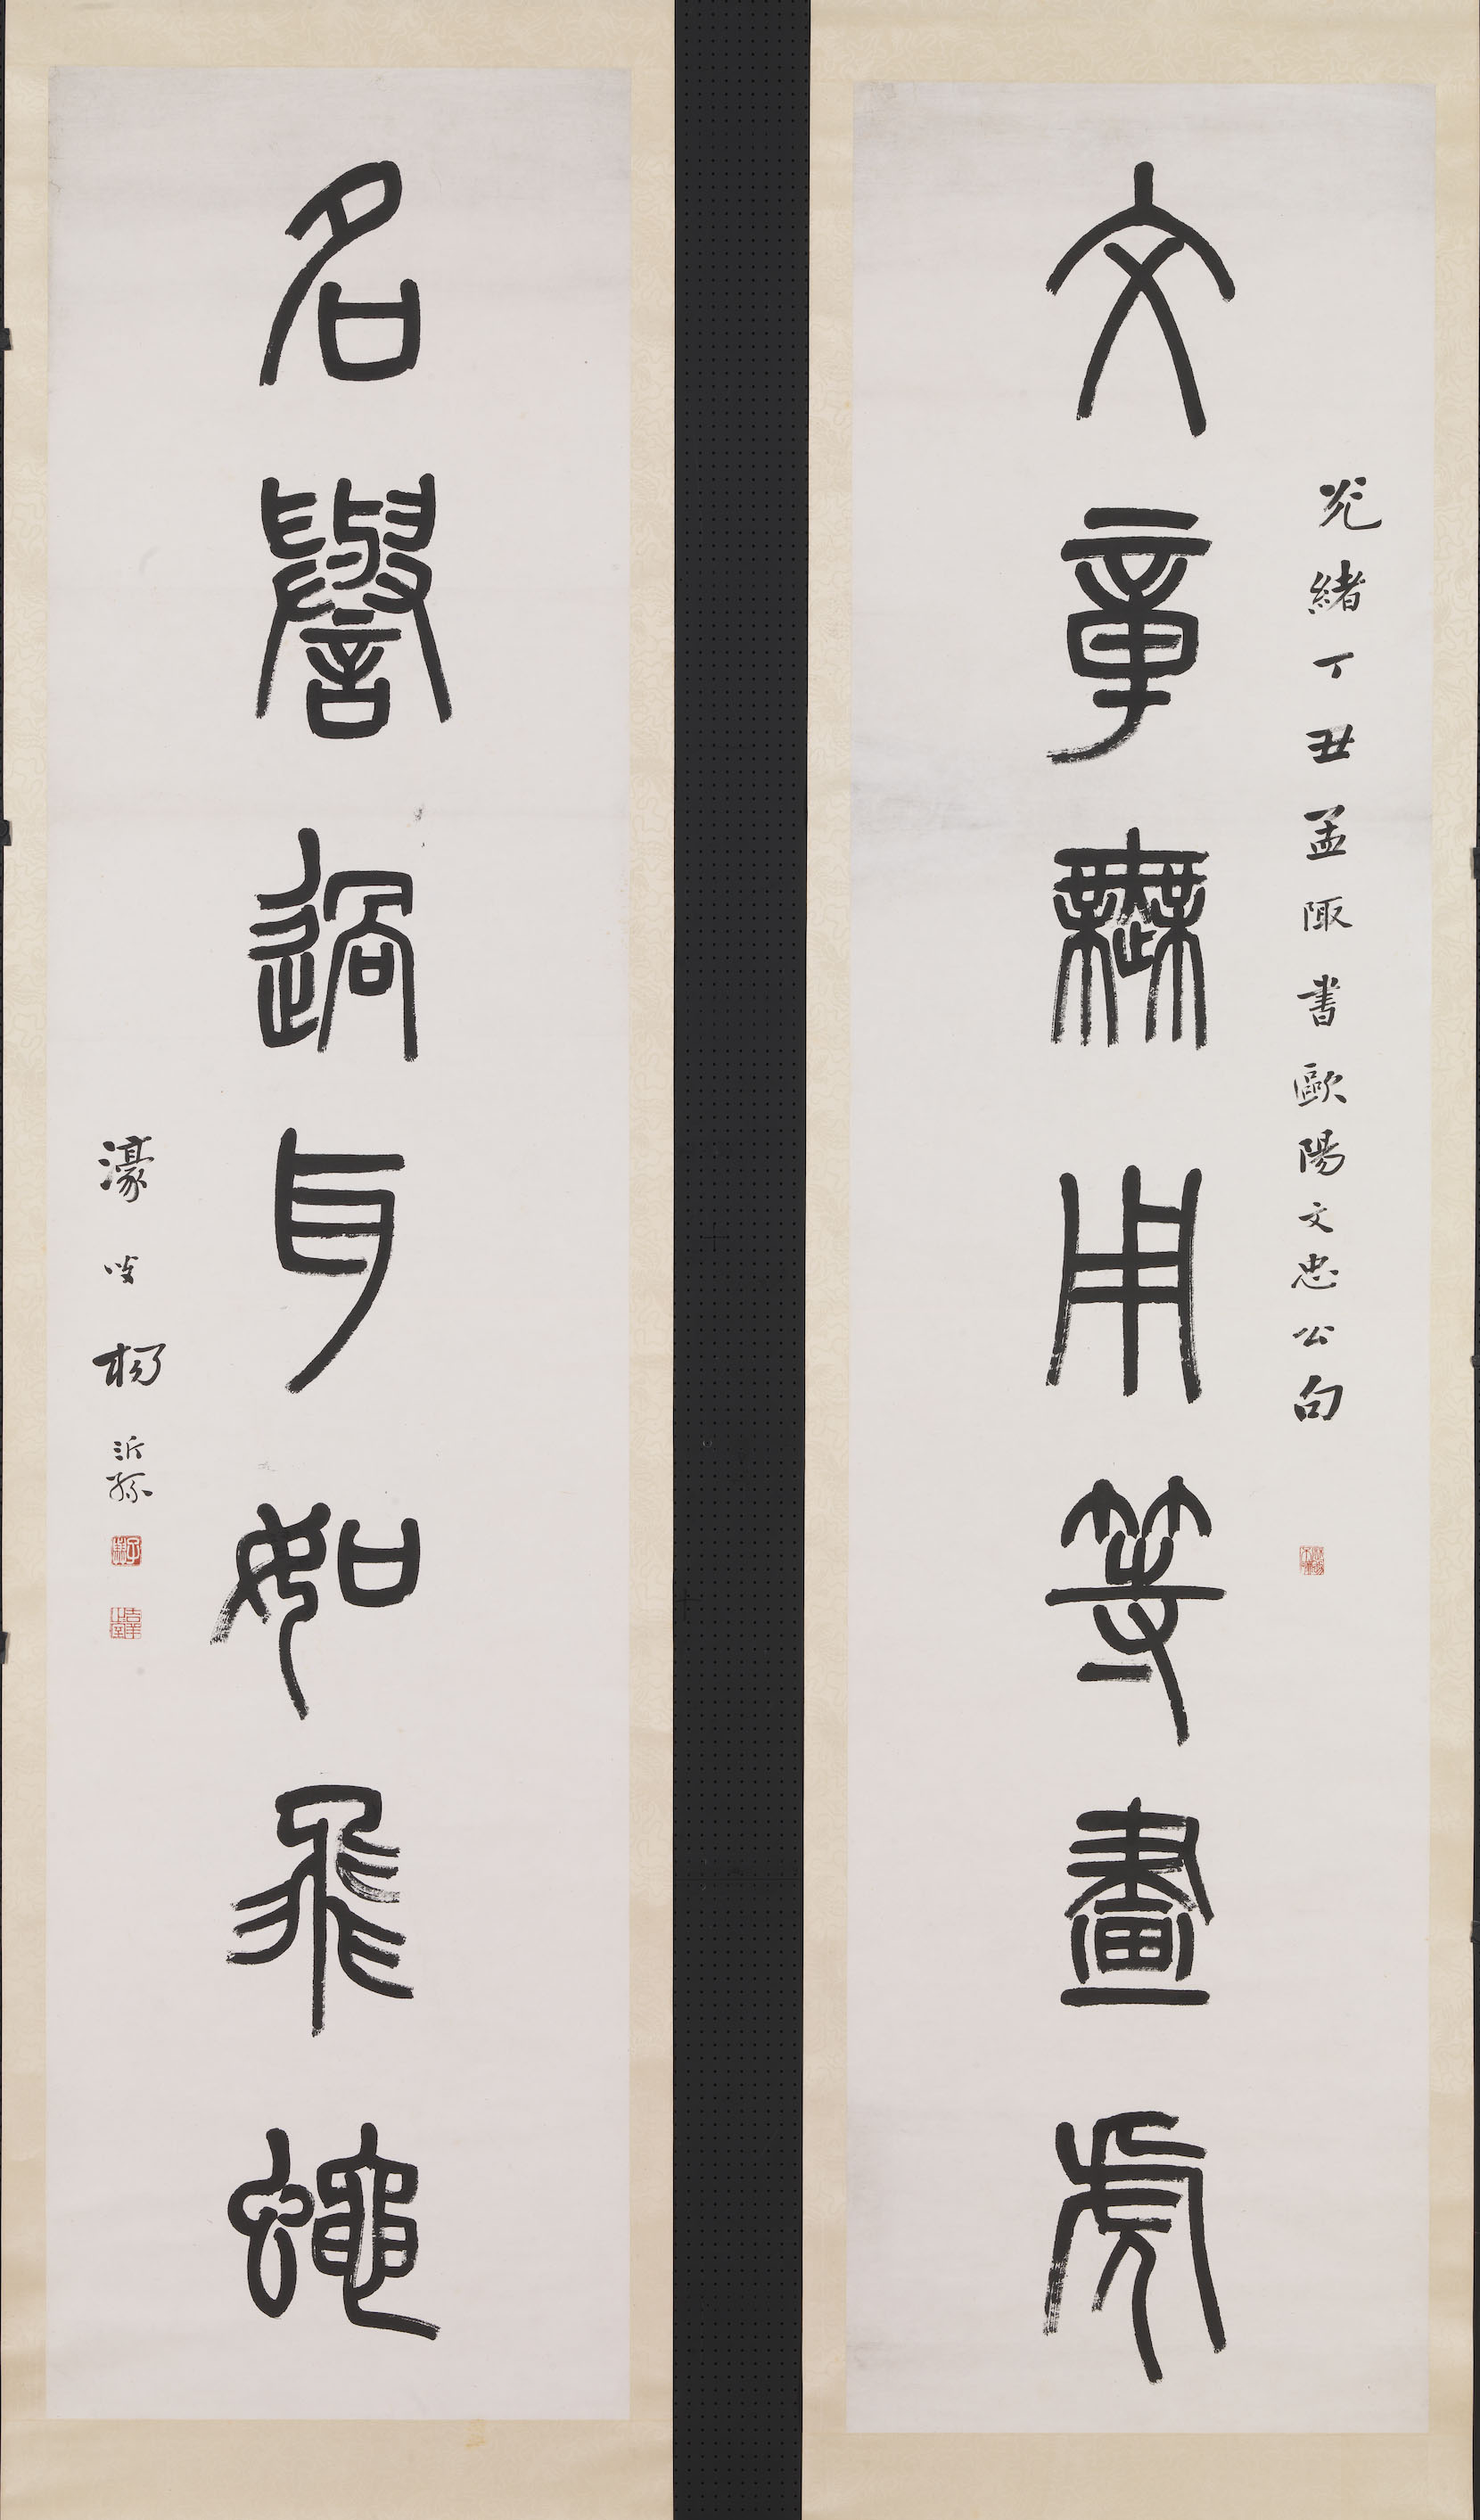 光緒丁丑孟陬書歐陽文忠公句
文章無用等畫虎
名譽過耳如飛蠅
濠叟楊沂孫
子與